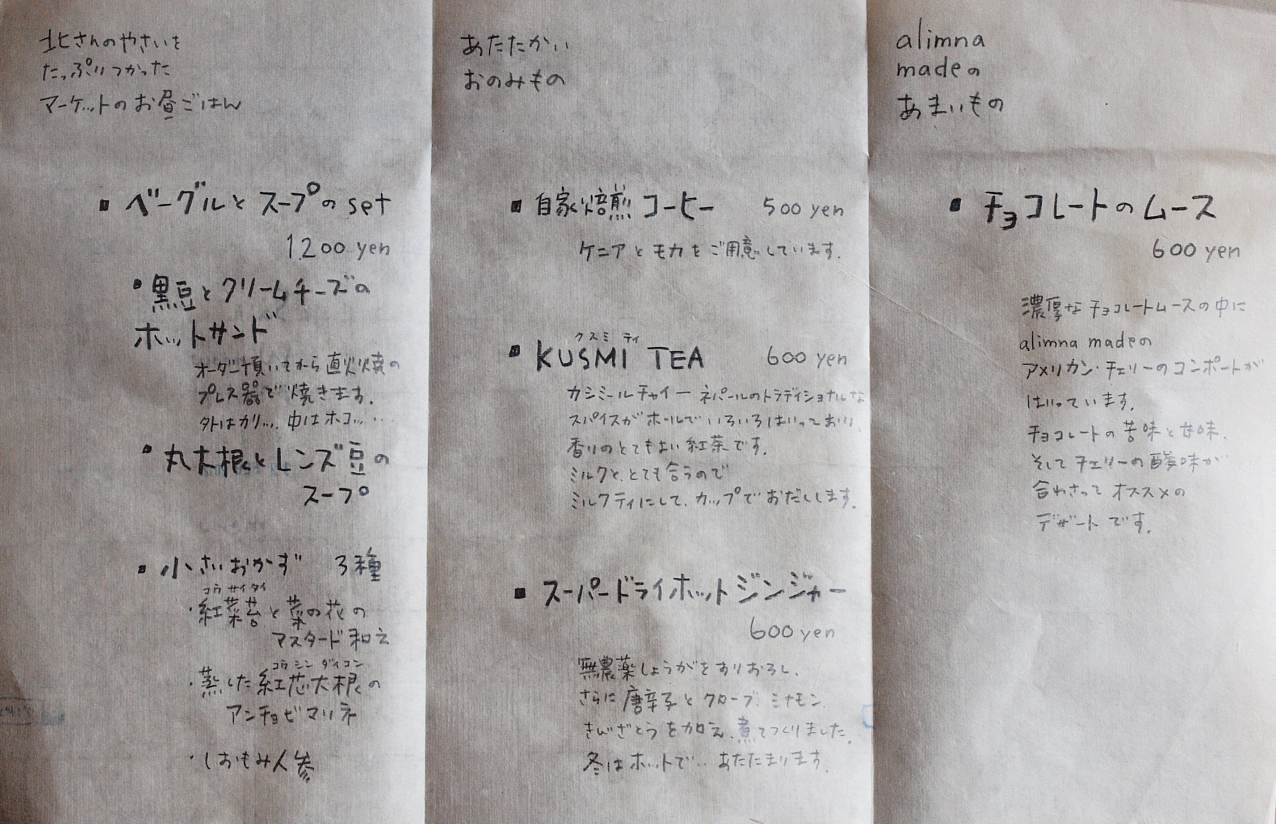 北さんのやさいを
たっぷりつかった
マーケットのお昼ごはん
ベーグルとスープの set
1200 yen
黒豆とクリームチーズの
ホットサンド
オーダー頂いてから直火焼の
プレス器で焼きます。
外はカリッ、中はホコッ・・・
丸大根とレンズ豆の
スープ
小さいおかず 3種
コウ サイ タイ
・紅菜苔と菜の花の
マスタード和え
コウ シン ダイコン
・蒸した紅芯大根の
アンチョビマリネ
・しおもみ人参
あたたかい
おのみもの
自家焙煎 コーヒー 500 yen
ケニアとモカをご用意しています。
クスミ ティ
KUSMI TEA 600 yen
カシミールチャイー ネパールのトラディショナルな
スパイスがホールでいろいろはいっており、
香りのとてもよい紅茶です。
ミルクと、とても合うので
ミルクティにして、カップでおだしします。
スーパードライホットジンジャー
600 yen
無農薬しょうがをすりおろし、
さらに唐辛子とクローブ、シナモン、
きびざとうを加え、煮てつくりました。
冬はホットで・・あたたまります。
alimna
madeの
あまいもの
チョコレートのムース
600 yen
濃厚なチョコレートムースの中に
alimna madeの
アメリカン・チェリーのコンポートが
はいっています。
チョコレートの苦味と甘味、
そしてチェリーの酸味が
合わさってオススメの
デザートです。